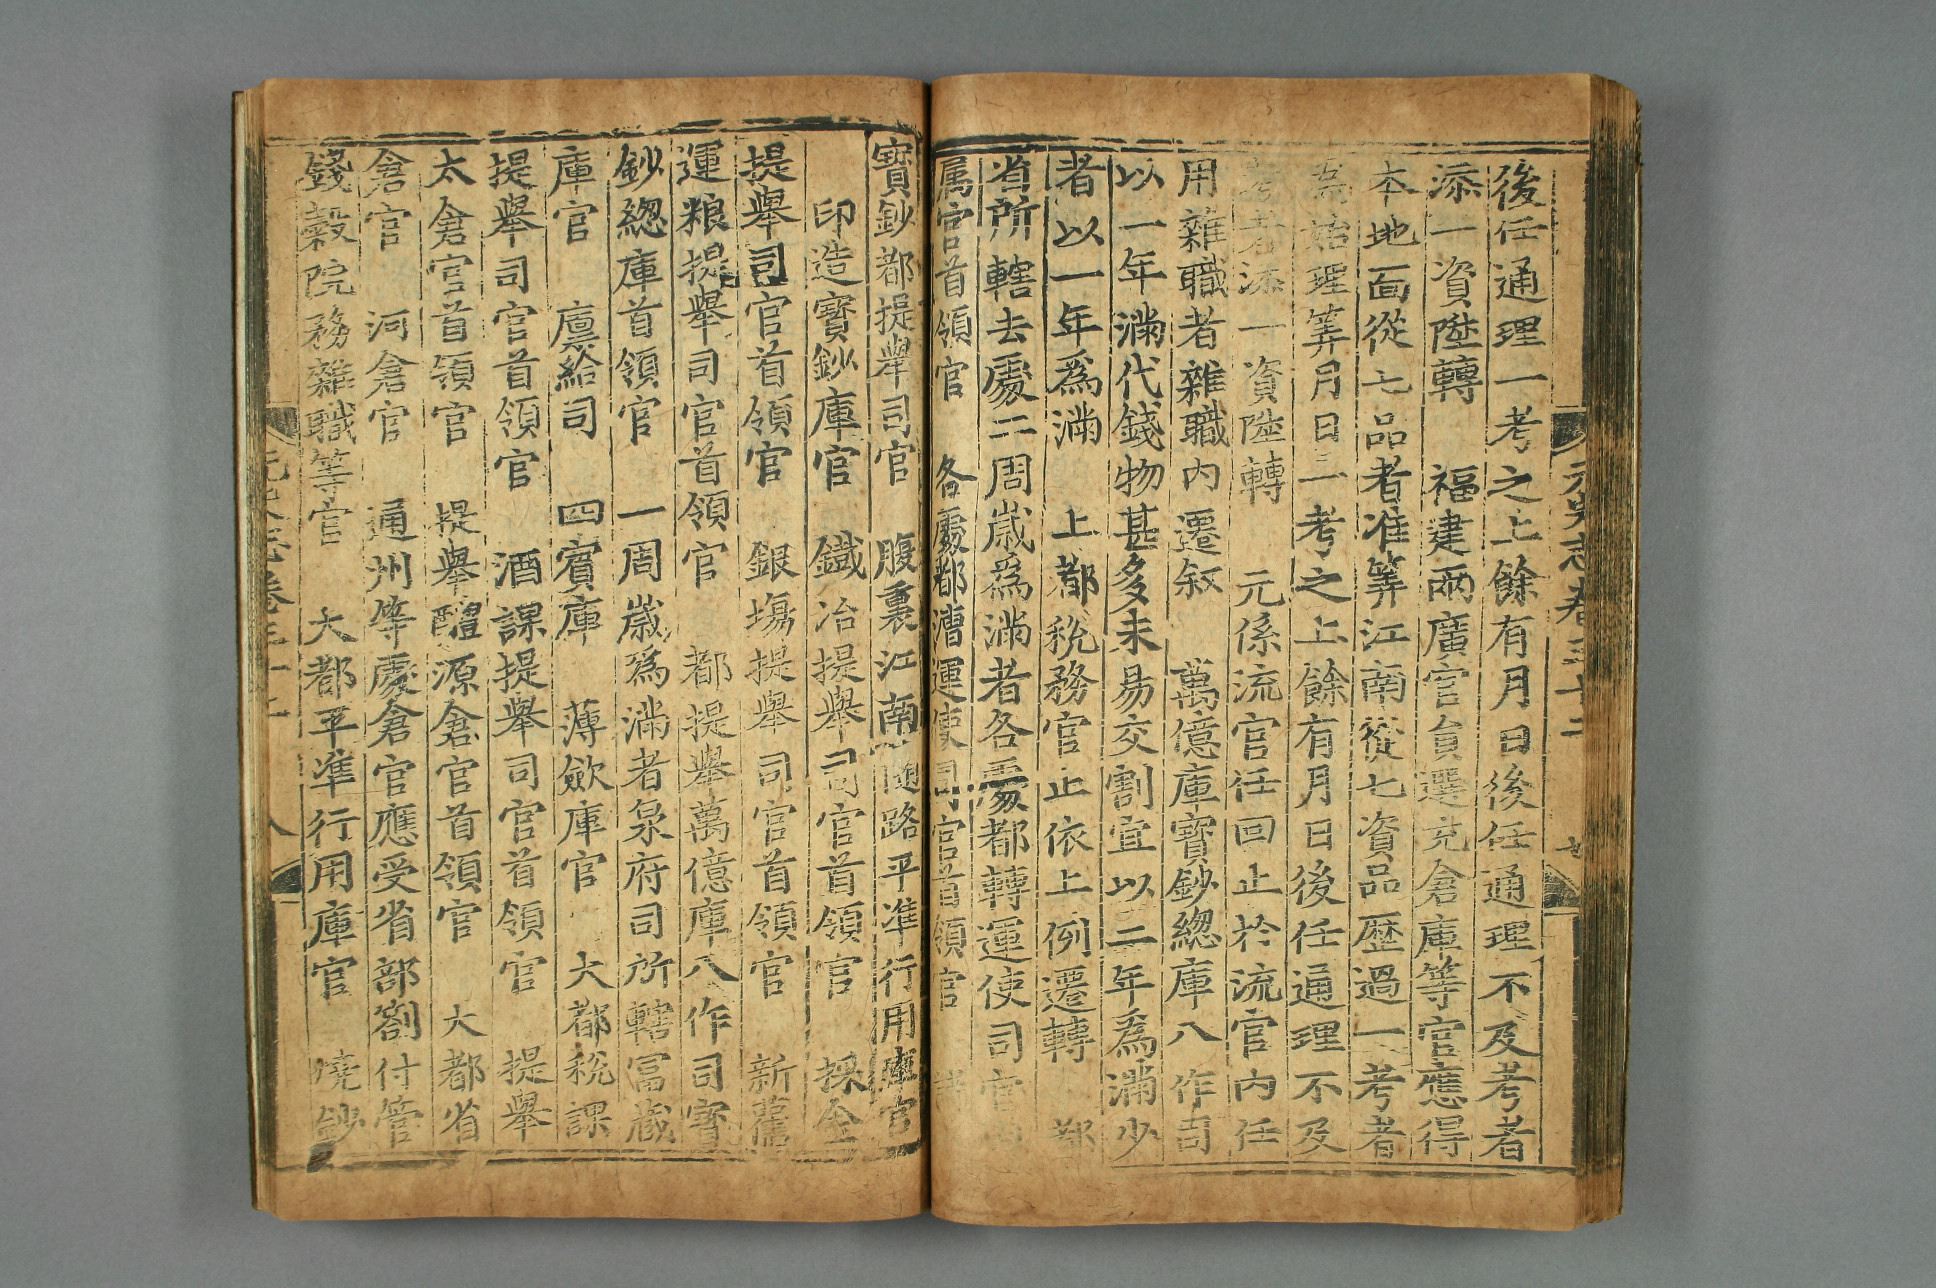 元史志卷三十二
後任通理一考之上餘有月日後任通理不及考者
添一資陞轉 福建兩廣官員選充倉庫等官應得
本地面從七品者准筭江南從七資品歷過一考者
爲始理筭月日一考之上餘有月日後任通理不及
考者添一資陞轉 元係流官任回止於流官內任
用雜職者雜職內遷叙 萬億庫寶鈔緫庫八作司
以一年滿代錢物甚多未易交割宜以二年爲滿少
者以一年爲滿 上都稅務官止依上例遷轉 都
省所轄去處二周歲爲滿者各處都轉運使司官
属官首領官 各處都漕運使司官首領官 諸
寶鈔都提舉司官 腹裏江南隨路平準行用庫官
印造寶鈔庫官 鐵冶提舉司官首領官 採金
提舉司官首領官 銀塲提舉司官首領官 新舊
運粮提舉司官首領官 都提舉萬億庫八作司寶
鈔緫庫首領官 一周歲爲滿者泉府司所轄冨藏
庫官 廪給司 四賓庫 薄歛庫官 大都稅課
提舉司官首領官 酒課提舉司官首領官 提舉
太倉官首領官 提舉醴源倉官首領官 大都省
倉官 河倉官 通州等處倉官應受省部劄付管
錢穀院務雜職等官 大都平準行用庫官 燒鈔
八